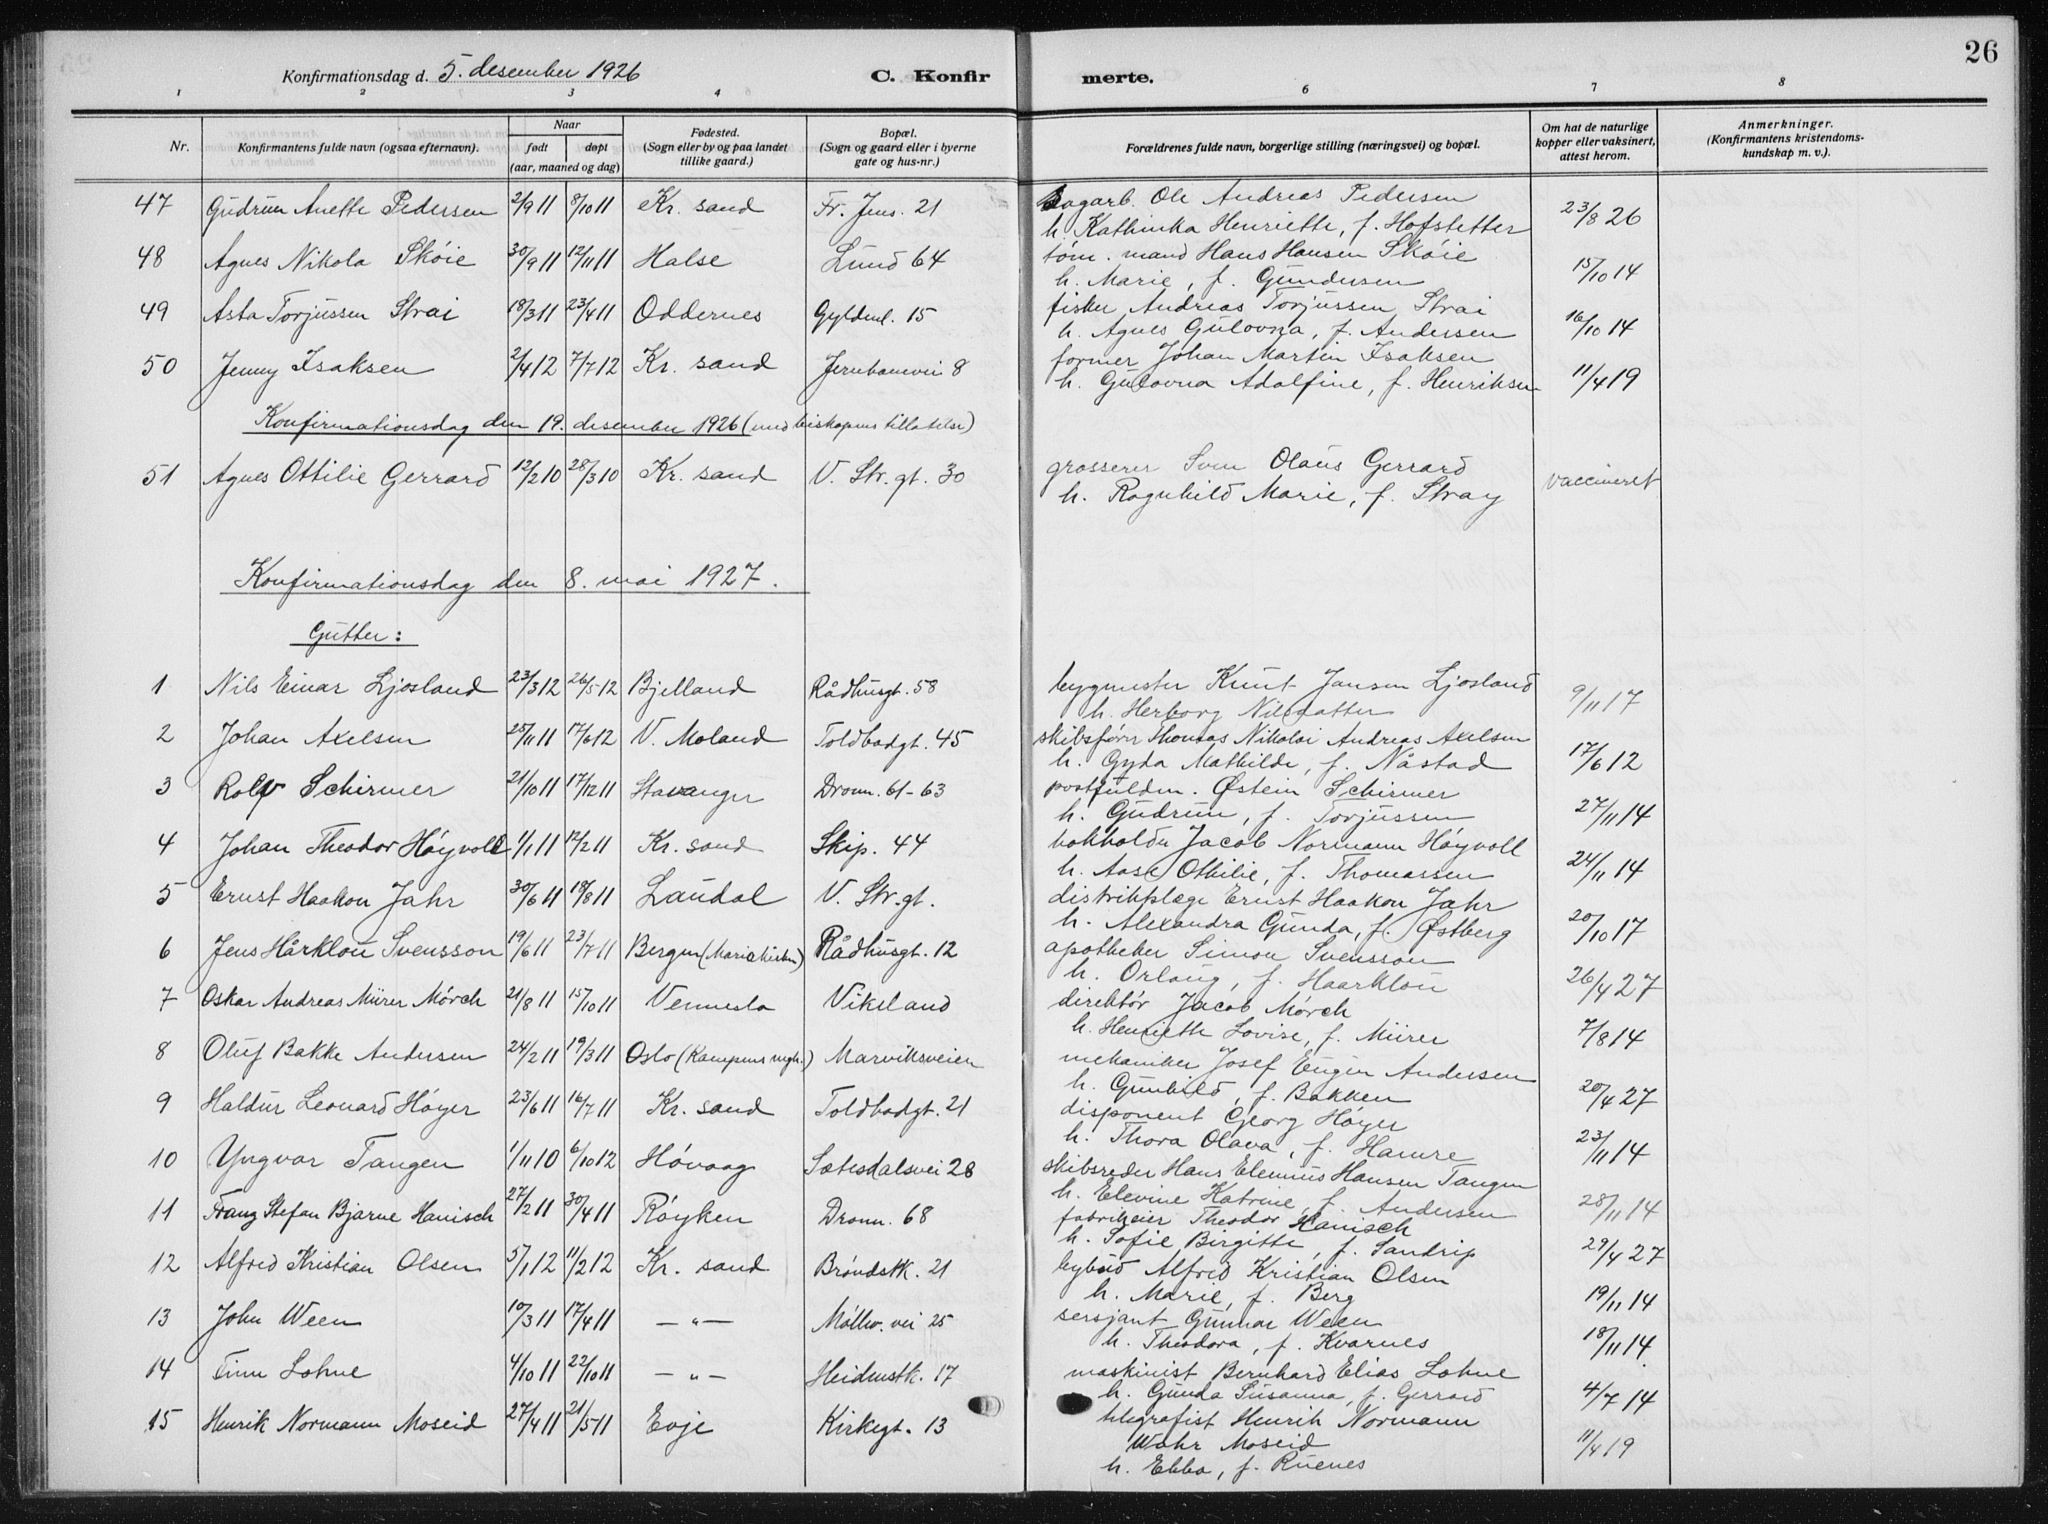 26
Konfirmationsdag d. 5. desember 1926 C. Konfirmerte.
1 2 3 4 6 7 8
Nr. Konfirmantens fulde navn (ogsaa efternavn). Naar født døpt (aar, maaned og dag) Fødested. (Sogn eller by og paa landet tillike gaard.) Bopæl. (Sogn og gaard eller i byerne gate og hus-nr.) Forældrenes fulde navn, borgerlige stilling (næringsvei) og bopæl. Om hat de naturlige kopper eller vaksinert, attest herom. Anmerkninger. (Konfirmantens kristendomskundskap m. v.).
47 Gudrun Anette Pedersen 2/9 11 8/10 11 Kr. sand Fr. Jens. 21 Ole Andreas Pedersen 23/8 26
h. Kathinka Henriette, f. Hofstetter
48 Agnes Nikola Skøie 30/9 11 12/11 11 Halse Lund 64 tøm. mand Hans Hansen Skøie 15/10 14
h. Marie, f. Gundersen
49 Asta Torjussen Strai 18/3 11 23/4 11 Oddernes Gyldenl. 15 fisker Andreas Torjussen Strai 16/10 14
h. Agnes Gulovna, f. Andersen
50 Jenny Isaksen 2/4 12 7/7 12 Kr. sand Jernbanevei 8 former Johan Martin Isaksen 11/4 19
h. Gulovna Adolfine, f. Henriksen
Konfirmationsdag den 19. desember 1926 (med biskopens tillatelse)
51 Agnes Ottilie Gerrard 12/2 10 28/3 10 Kr. sand V. Str. gt. 30 grosserer Sven Olaus Gerrard vaccineret
h. Ragnhild Marie, f. Stray
Konfirmationsdag den 8. mai 1927.
Gutter:
1 Nils Einar Ljosland 23/3 12 26/5 12 Bjelland Rådhusgt. 58 bygmester Knut Jansen Ljosland 9/11 17
h. Herborg Nilsdatter
2 Johan Axelsen 25/11 11 17/6 12 V. Moland Toldbodgt. 45 skibsfører Thomas Nikolai Andreas Axelsen 17/6 12
h. Gyda Mathilde, f. Nåstad
3 Rolv Schirmer 21/10 11 17/12 11 Stavanger Dronn. 61-63 postfuldm. Østein Schirmer 27/11 14
h. Gudrun, f. Torjussen
4 Johan Theodor Høyvold 1/1 11 12/2 11 Kr. sand Skip. 44 bokholder Jacob Normann Høyvoll 24/11 14
h. Aase Othilie, f. Thomassen
5 Ernst Haakon Jahr 30/6 11 18/8 11 Laudal V. Str. gt. distriktslæge Ernst Haakon Jahr 20/10 17
h. Alexandra Gunda, f. Østberg
6 Jens Hårklou Svensson 19/6 11 23/7 11 Bergen (Mariekirken) Rådhusgt. 12 apotheker Simon Svensson 26/4 27
h. Orlaug, f. Haarklou
7 Oskar Andreas Mürer Mørch 21/8 11 15/10 11 Vennesla Vikeland direktør Jacob Mørch 7/8 14
h. Henriette Lovise, f. Mürer
8 Oluf Bakke Andersen 24/2 11 19/3 11 Oslo (Kampens mgh.) Marviksveien mekaniker Josef Eugen Andersen 20/4 27
h. Gunhild, f. Bakken
9 Haldur Leonard Høyer 23/6 11 16/7 11 Kr. sand Toldbodgt. 21 disponent Georg Høyer 23/11 14
h. Thora Olava, f. Hamre
10 Yngvar Tangen 1/11 10 6/10 12 Høvaag Sætesdalsvei 28 skibsreder Hans Elenius Hansen Tangen 28/11 14
h. Elevine Katrine, f. Andersen
11 Franz Stefan Bjarne Hanisch 27/2 11 30/4 11 Røyken Dronn. 68 fabrikeier Theodor Hanisch 29/4 27
h. Sofie Birgitte, f. Sandrip
12 Alfred Kristian Olsen 5/1 12 11/2 12 Kr. sand Brøndstk. 21 bybud Alfred Kristian Olsen 19/11 14
h. Marie, f. Berg
13 John Ween 10/3 11 17/4 11 — " — Møllev. vei 25 sersjant Gunnar Ween 18/11 14
h. Theodora, f. Kvarnes
14 Finn Lohne 4/10 11 22/10 11 — " — Heidenstk. 17 maskinist Bernhard Elias Lohne 4/7 14
h. Gunda Susanna, f. Gerrard
15 Henrik Normann Moseid 27/4 11 21/5 11 Evje Kirkegt. 13 telegrafist Henrik Normann 11/4 19
Wahr Moseid
h. Ebba, f. Ruenes